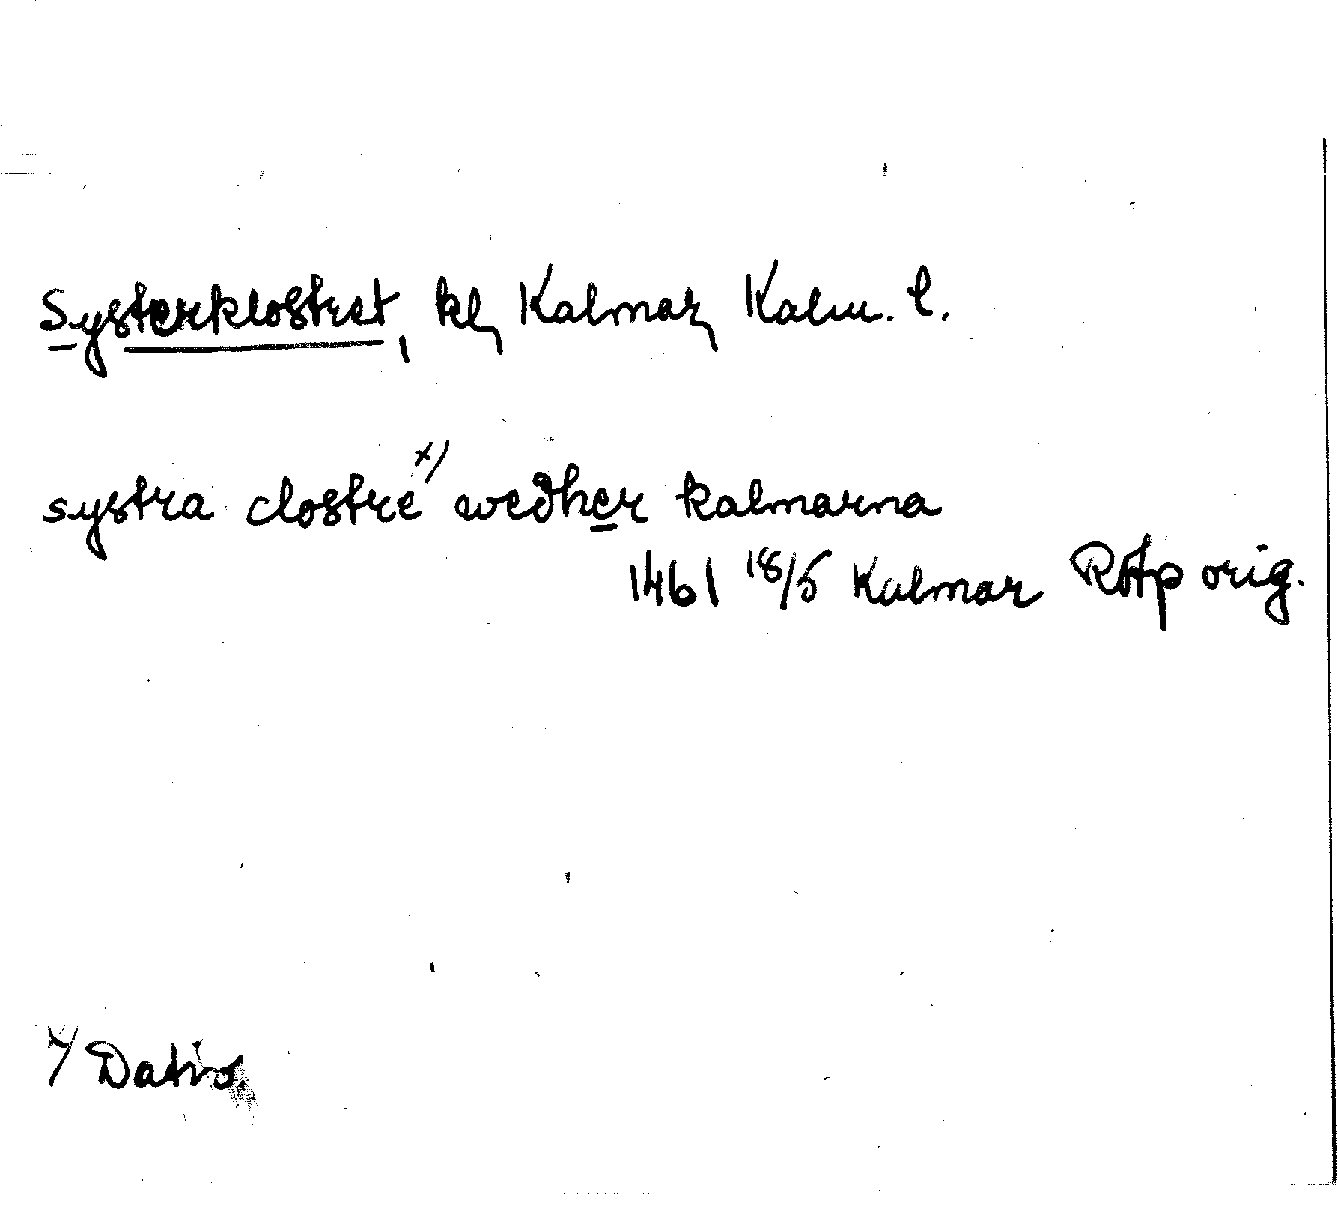 Systerklostret, kl, Kalmar, Kalm. l.
systra clostre x) wedher kalmarna
1461 18/5 Kalmar RAp orig.
x/ Dativ.